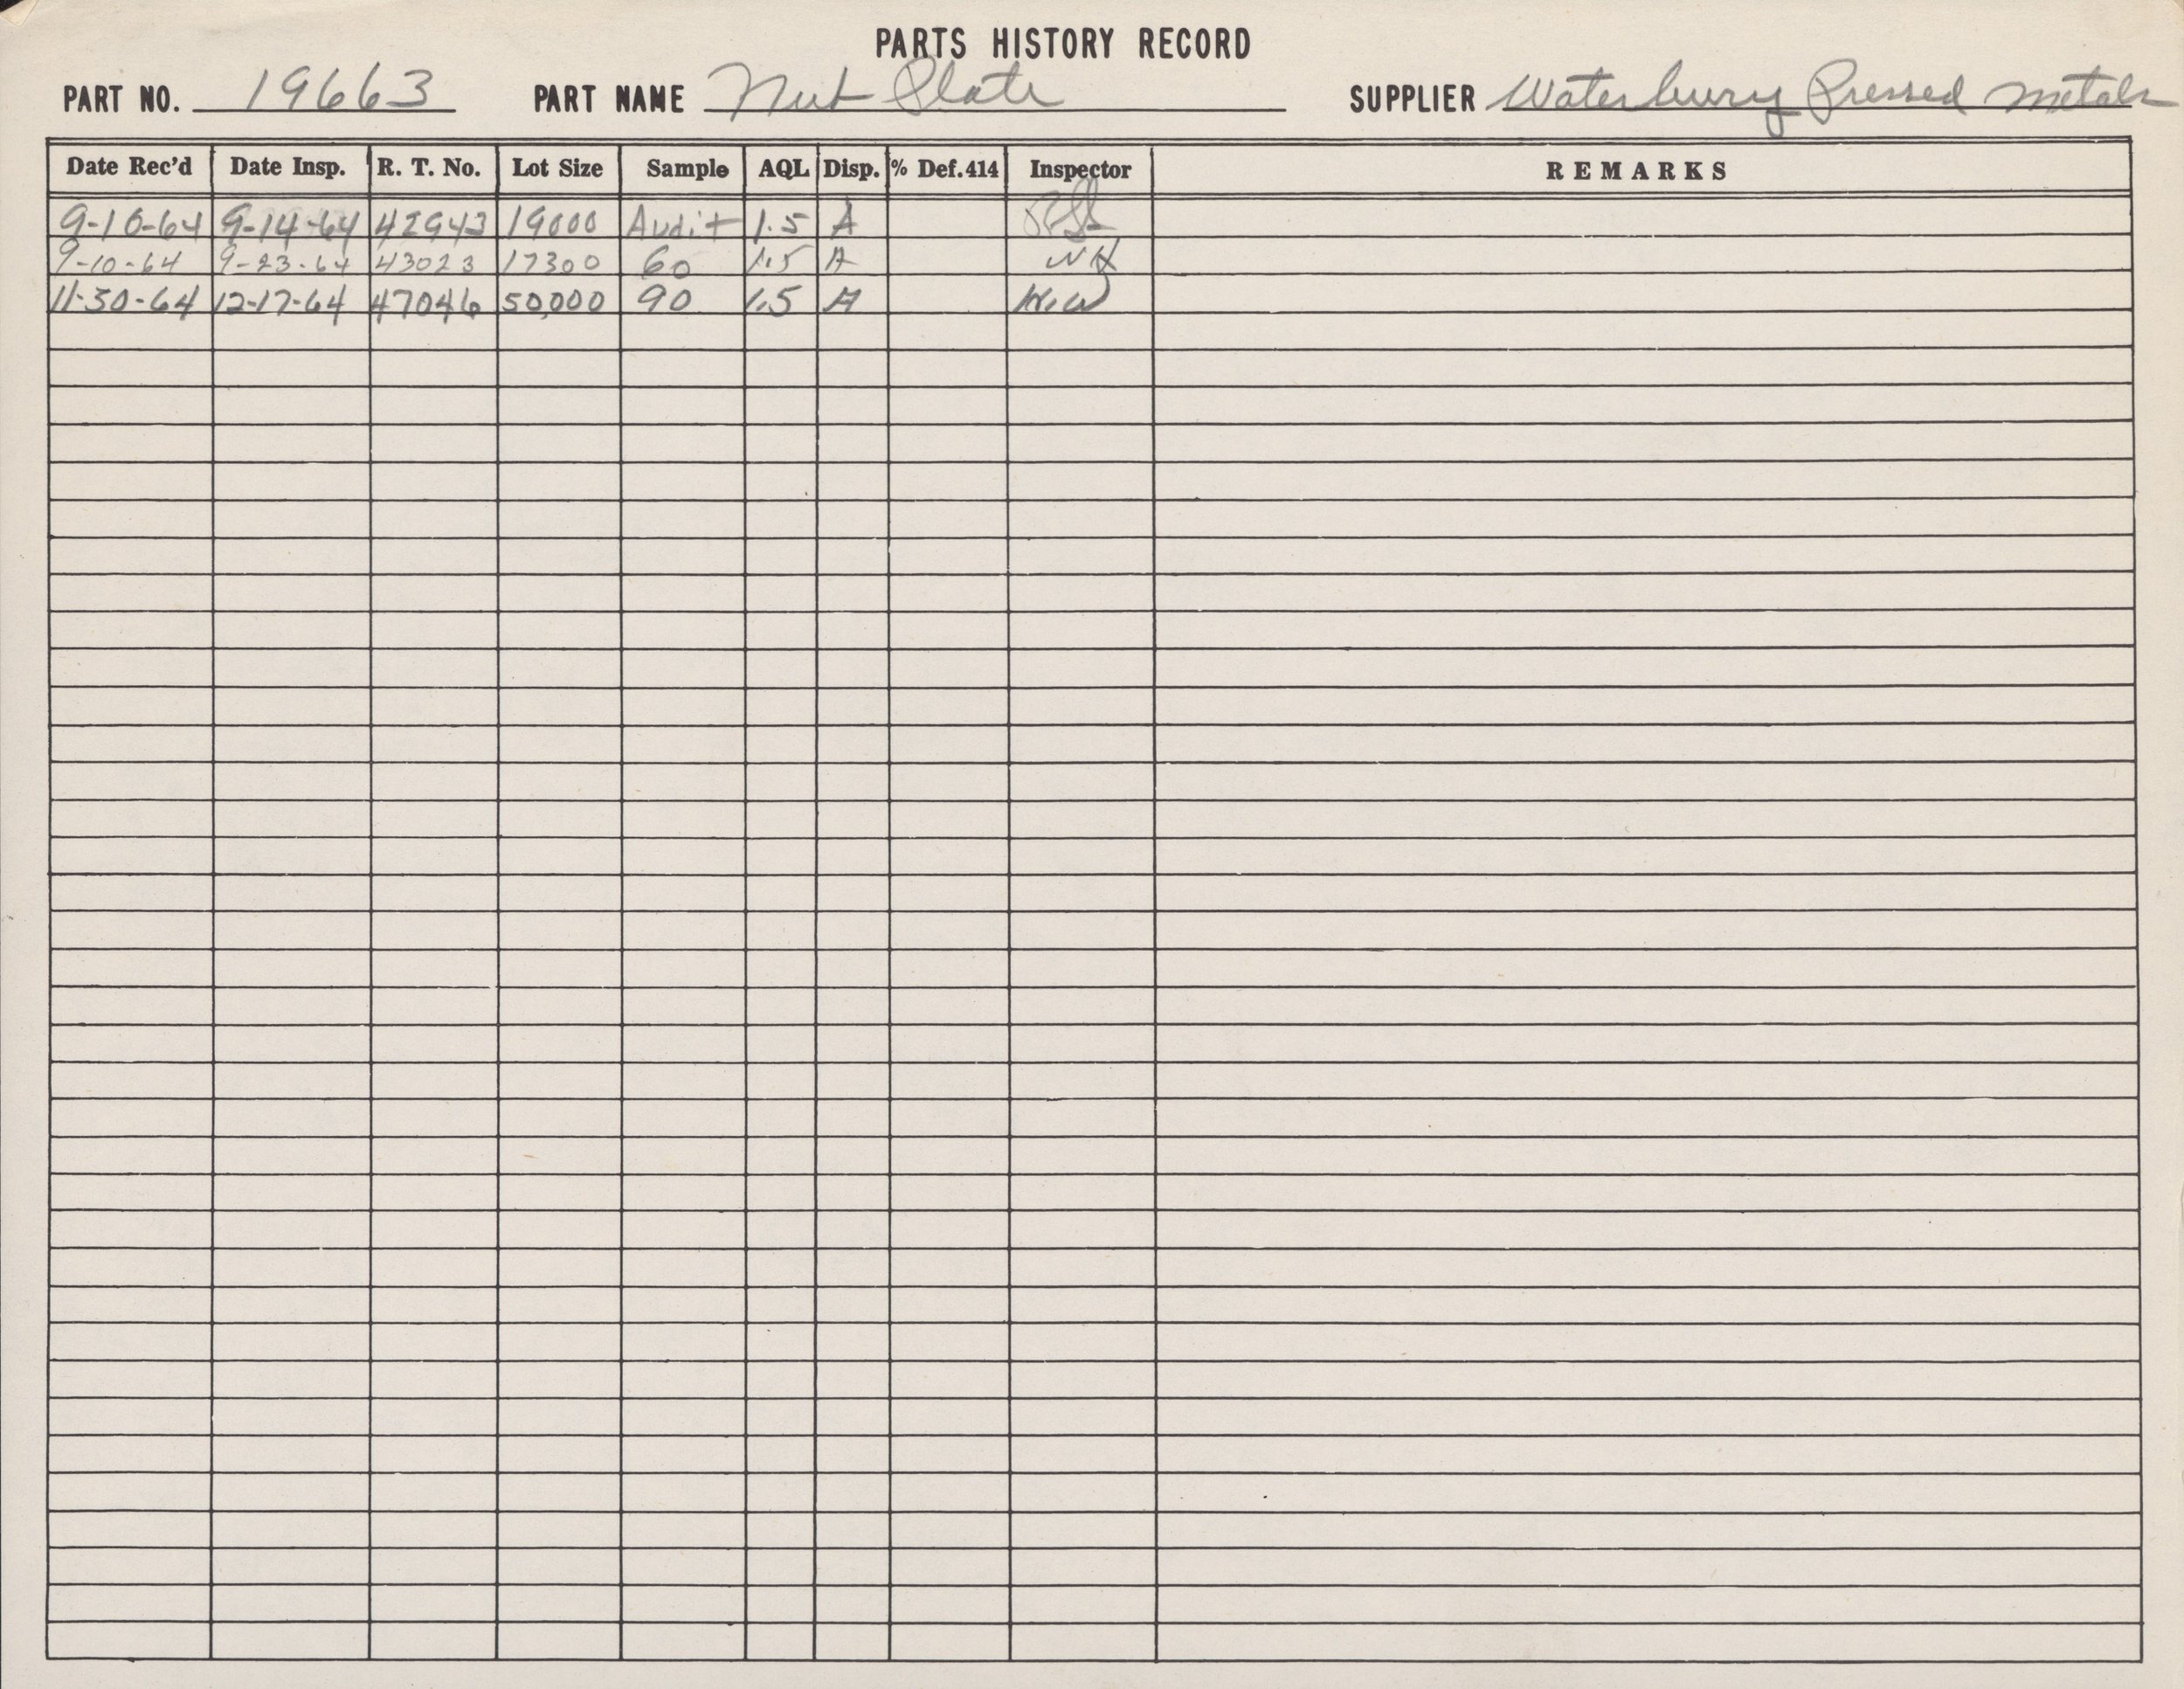 PARTS HISTORY RECORD
PART NO. 19663 PART NAME Nut Plate SUPPLIER Waterbury Pressed Metals
Date Rec'd Date Insp. R. T. No. Lot Size Sample AQL Disp. % Def.414 Inspector REMARKS
9-10-64 9-14-64 42943 19000 Audit 1.5 A
9-10-64 9-23-64 43023 17300 60 1.5 A
11-30-64 12-17-64 47046 50,000 90 1.5 A H.W